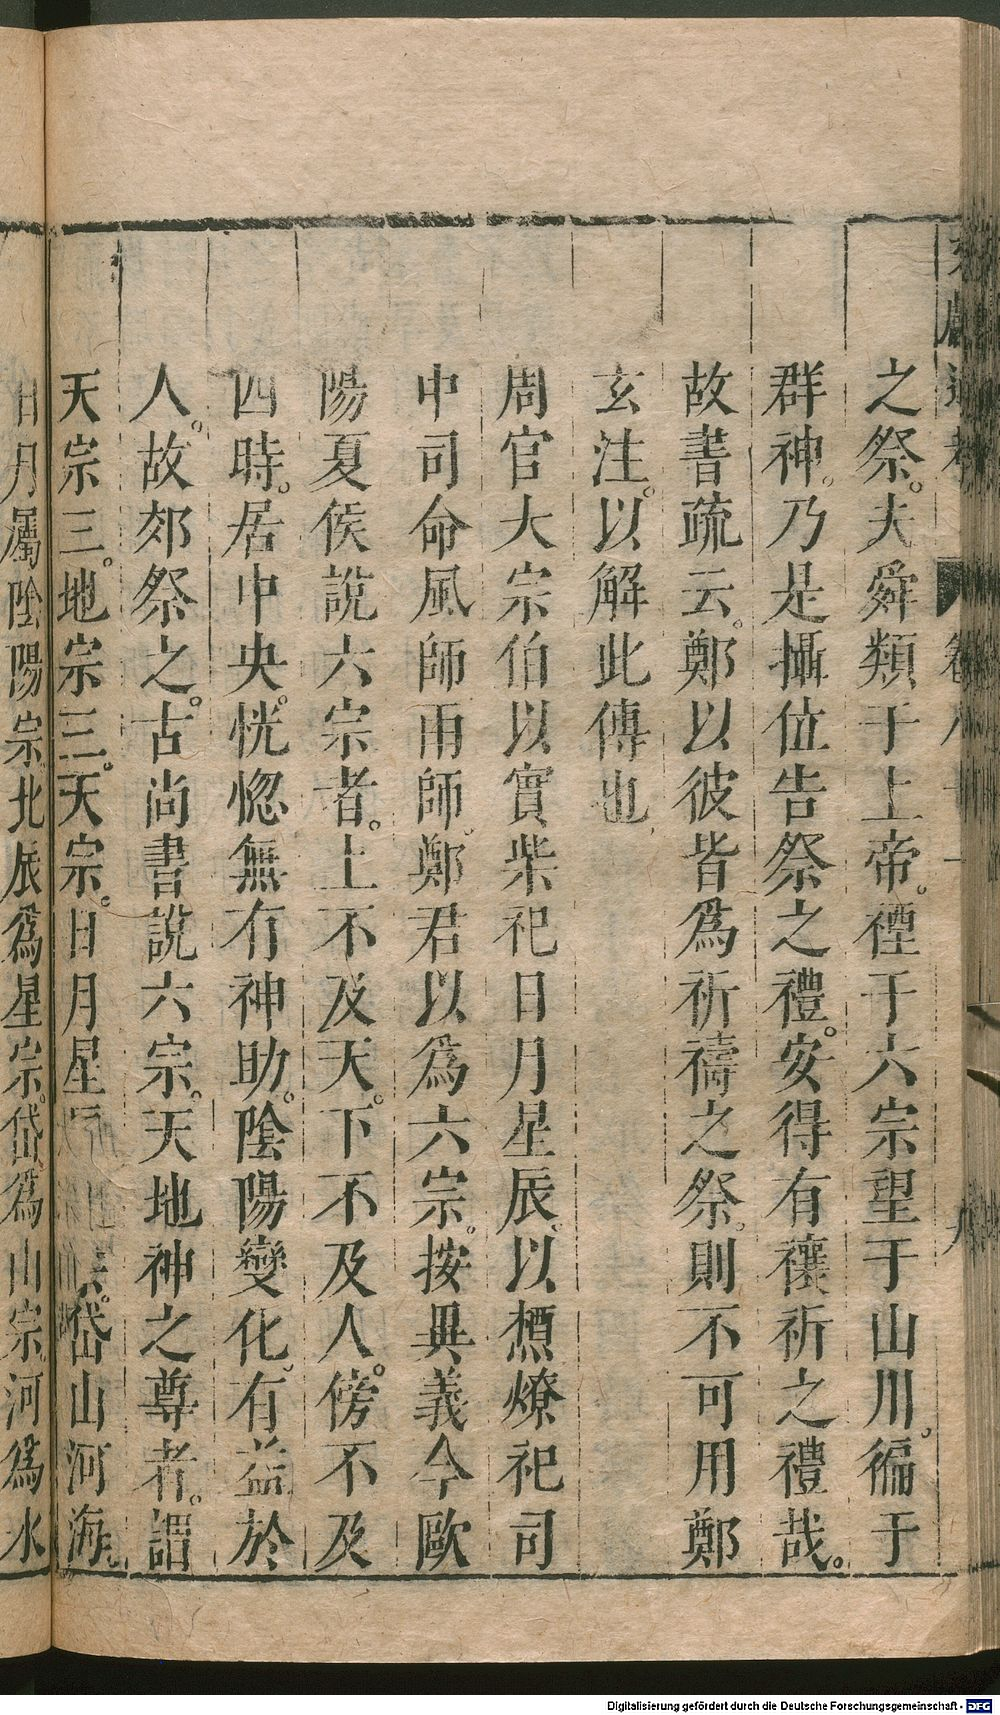 之祭。夫舜類于上帝。禋于六宗望于山川。徧于
群神。乃是攝位告祭之禮。安得有禳祈之禮哉。
故書疏云。鄭以彼皆爲祈禱之祭。則不可用鄭
玄注。以解此傳也
周官大宗伯以實柴祀日月星辰。以槱燎祀司
中司命風師雨師。鄭君以爲六宗。按異義今歐
陽夏侯說六宗者。上不及天。下不及人。傍不及
四時。居中央。恍惚無有神助。陰陽變化。有益於
人。故郊祭之。古尚書說六宗。天地神之尊者。謂
天宗三。地宗三。天宗。日月星辰 岱山河海。
日月屬陰陽宗。北辰爲星宗。岱爲山宗。河爲水
Digitalisierung gefördert durch die Deutsche Forschungsgemeinschaft - DFG